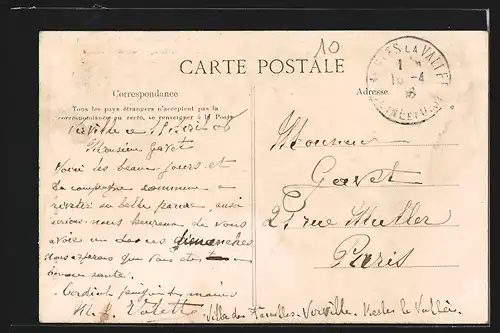 10
CARTE POSTALE
Correspondance
Tous les pays étrangers n'acceptent pas la
correspondance au recto, se renseigner à la Poste
Adresse
LES LA VALLÉE
Verville
Monsieur Gavet
Voici les beaux jours et
la campagne commence a
sa belle parure, aussi
serions nous heureux de vous
avoir un de ces dimanches
Nous espérons que vous êtes en
bonne santé.
Cordiale poignée de mains
M. Valette
Villa des Familles. Verville. Nesles la Vallée.
Monsieur
Gavet
27 rue Muller
Paris